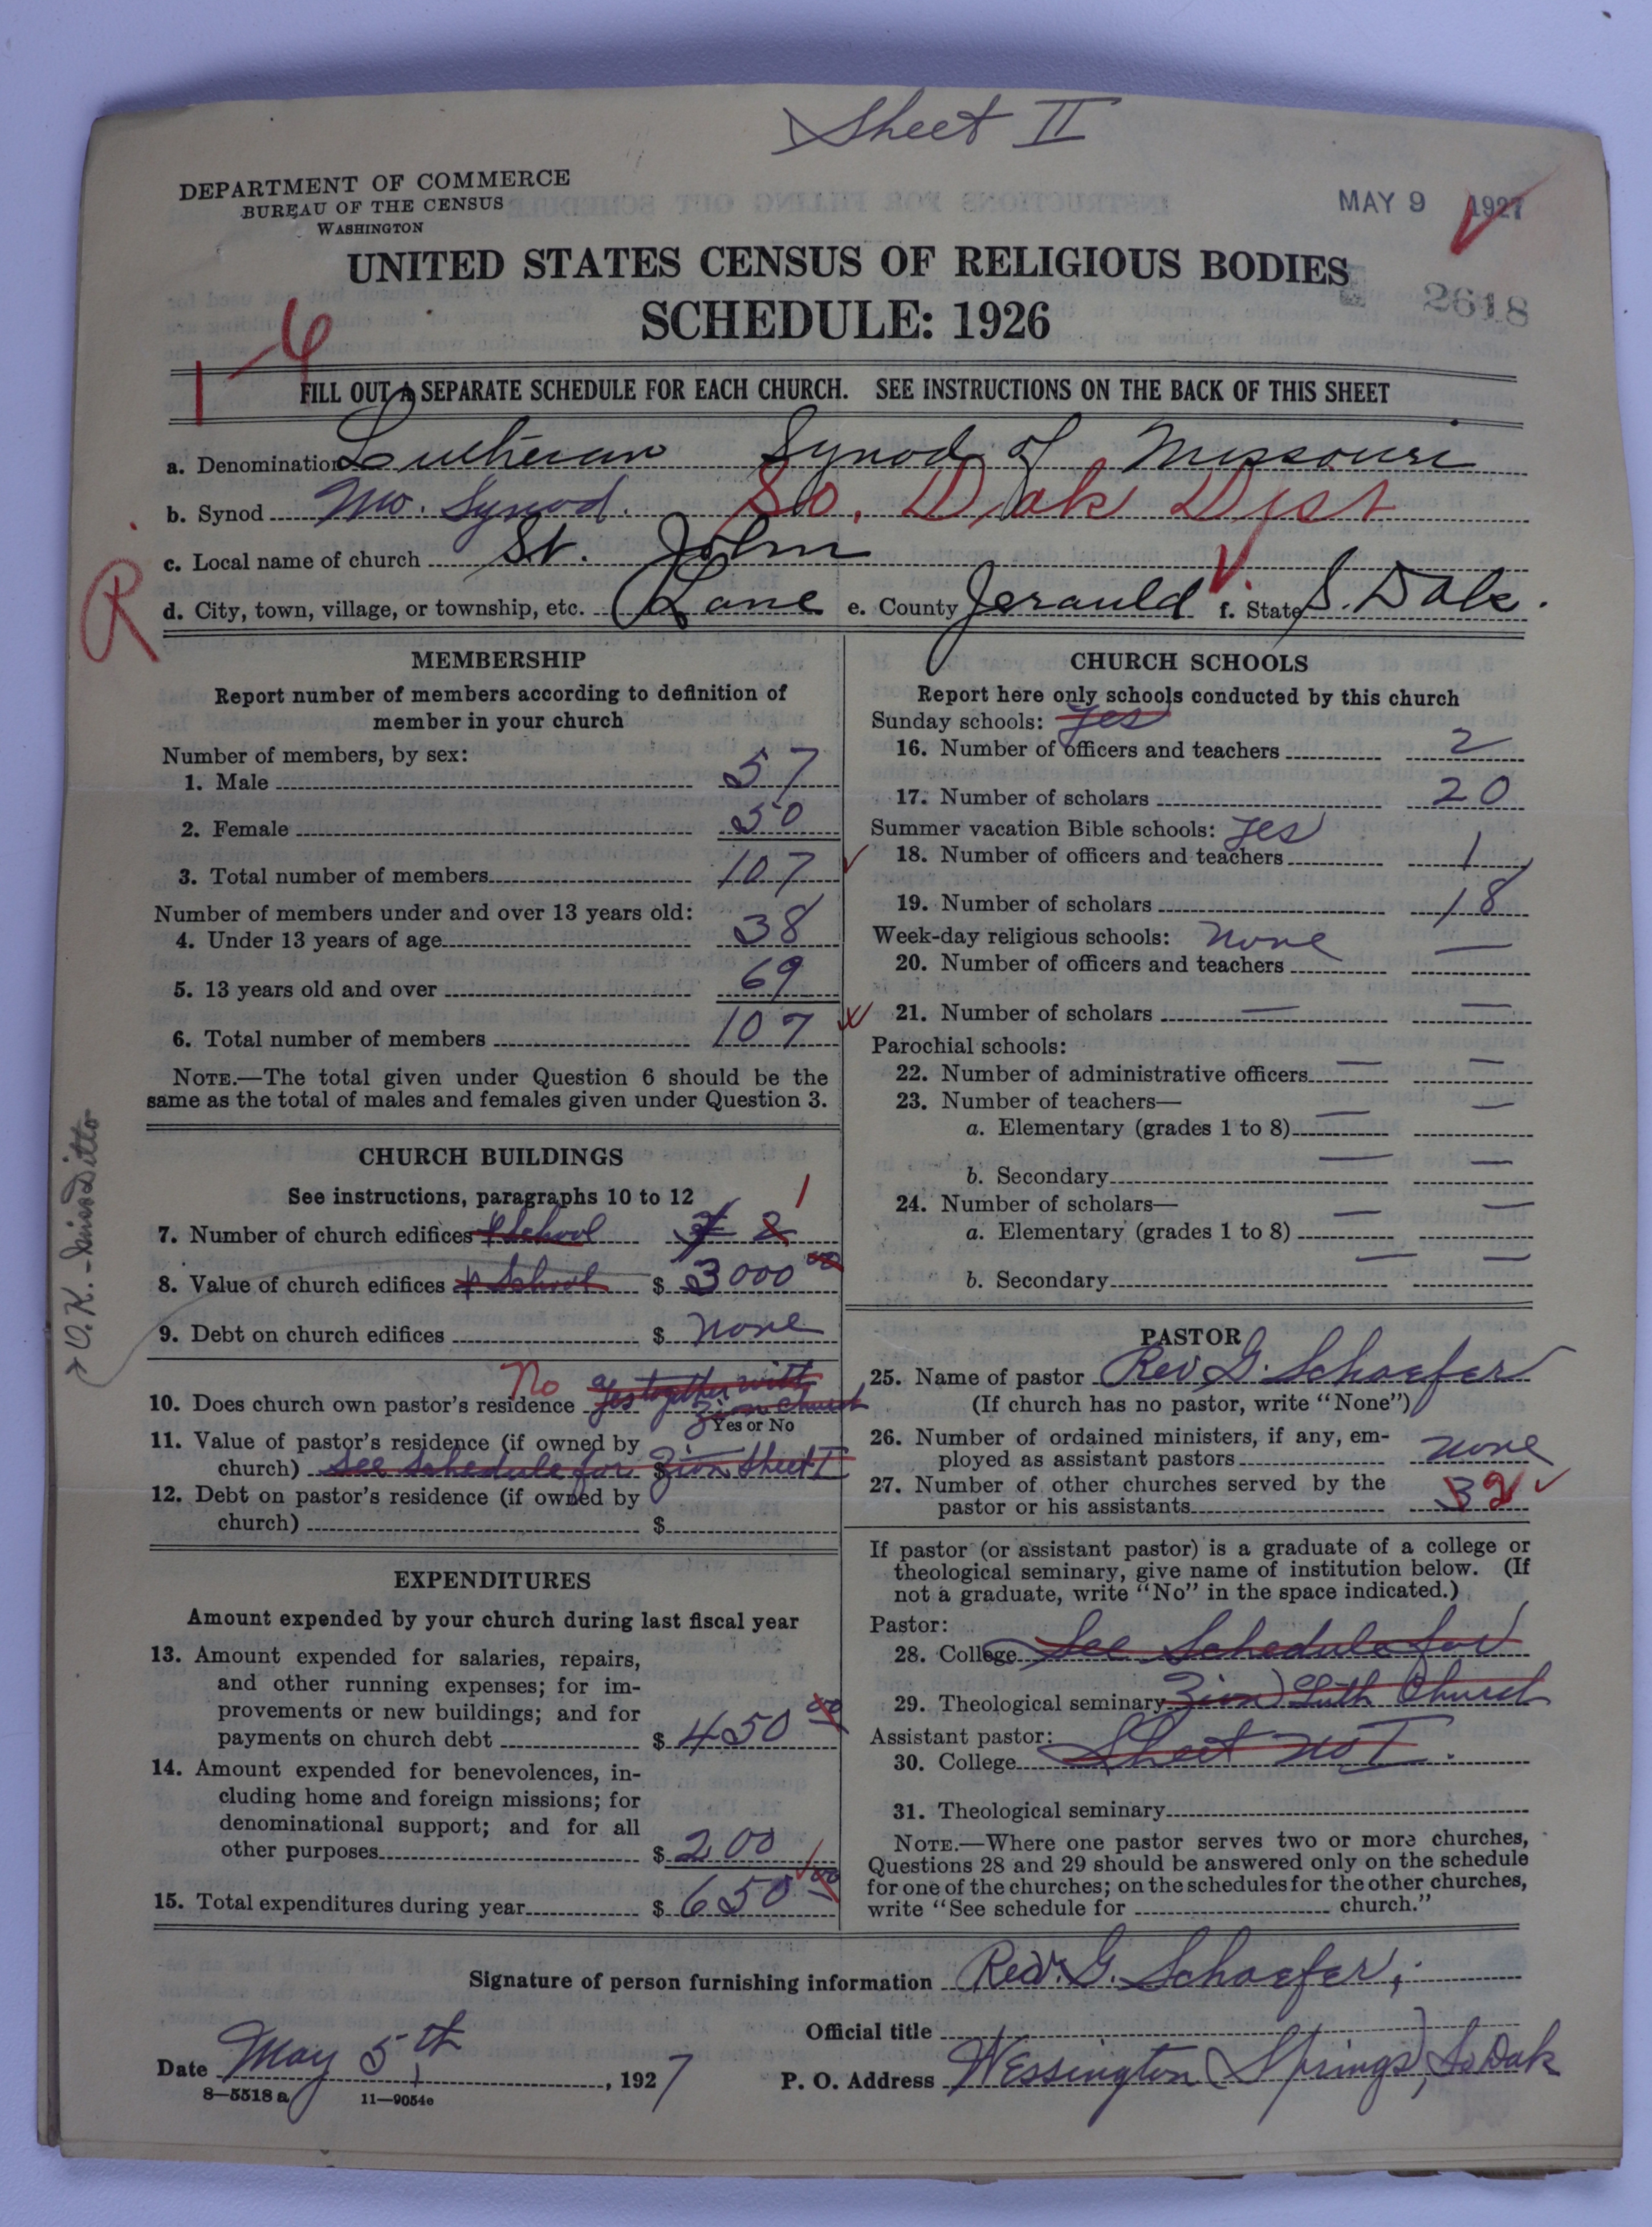 Sheet II
DEPARTMENT OF COMMERCE
BUREAU OF THE CENSUS
WASHINGTON
MAY 9 1927
UNITED STATES CENSUS OF RELIGIOUS BODIES
SCHEDULE: 1926
2618
1-6
FILL OUT A SEPARATE SCHEDULE FOR EACH CHURCH. SEE INSTRUCTIONS ON THE BACK OF THIS SHEET
a. Denomination Lutheran Synod of Missouri
b. Synod Mo. Synod. So. Dak Dist
c. Local name of church St. John
R
d. City, town, village, or township, etc. Lane e. County Jerauld f. State S. Dak.
MEMBERSHIP
Report number of members according to definition of
member in your church
Number of members, by sex:
1. Male 57
2. Female 50
3. Total number of members 107
Number of members under and over 13 years old:
4. Under 13 years of age 38
5. 13 years old and over 69
6. Total number of members 107
NOTE.—The total given under Question 6 should be the
same as the total of males and females given under Question 3.
CHURCH BUILDINGS
See instructions, paragraphs 10 to 12
7. Number of church edifices & School 2 1
8. Value of church edifices & School $ 3000 00
9. Debt on church edifices $ none
10. Does church own pastor's residence No yes together with
Zion Church
Yes or No
11. Value of pastor's residence (if owned by
church) See Schedule for $ Zion Sheet I
12. Debt on pastor's residence (if owned by
church) $
O.K. - Miss Ditto
EXPENDITURES
Amount expended by your church during last fiscal year
13. Amount expended for salaries, repairs,
and other running expenses; for im-
provements or new buildings; and for
payments on church debt $ 450 00
14. Amount expended for benevolences, in-
cluding home and foreign missions; for
denominational support; and for all
other purposes $ 200
15. Total expenditures during year $ 650 00
CHURCH SCHOOLS
Report here only schools conducted by this church
Sunday schools: yes
16. Number of officers and teachers 2
17. Number of scholars 20
Summer vacation Bible schools: yes
18. Number of officers and teachers 1
19. Number of scholars 18
Week-day religious schools: none
20. Number of officers and teachers —
21. Number of scholars — —
Parochial schools:
22. Number of administrative officers — —
23. Number of teachers—
a. Elementary (grades 1 to 8) — —
b. Secondary — —
24. Number of scholars—
a. Elementary (grades 1 to 8) — —
b. Secondary — —
PASTOR
25. Name of pastor Rev. G. Schaefer
(If church has no pastor, write "None")
26. Number of ordained ministers, if any, em-
ployed as assistant pastors none
27. Number of other churches served by the
pastor or his assistants 3 2
If pastor (or assistant pastor) is a graduate of a college or
theological seminary, give name of institution below. (If
not a graduate, write "No" in the space indicated.)
Pastor:
28. College See Schedule for
29. Theological seminary Zion Luth Church
Assistant pastor:
30. College Sheet no I.
31. Theological seminary
NOTE.—Where one pastor serves two or more churches,
Questions 28 and 29 should be answered only on the schedule
for one of the churches; on the schedules for the other churches,
write "See schedule for church."
Signature of person furnishing information Rev. G. Schaefer,
Official title
Date May 5th, 1927
P. O. Address Wessington Springs, So Dak
8—5518 a 11—9054e